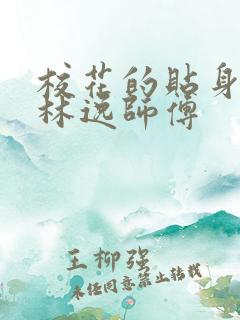 校花的貼身
林逸師傅
王柳强
未经同意禁止转载